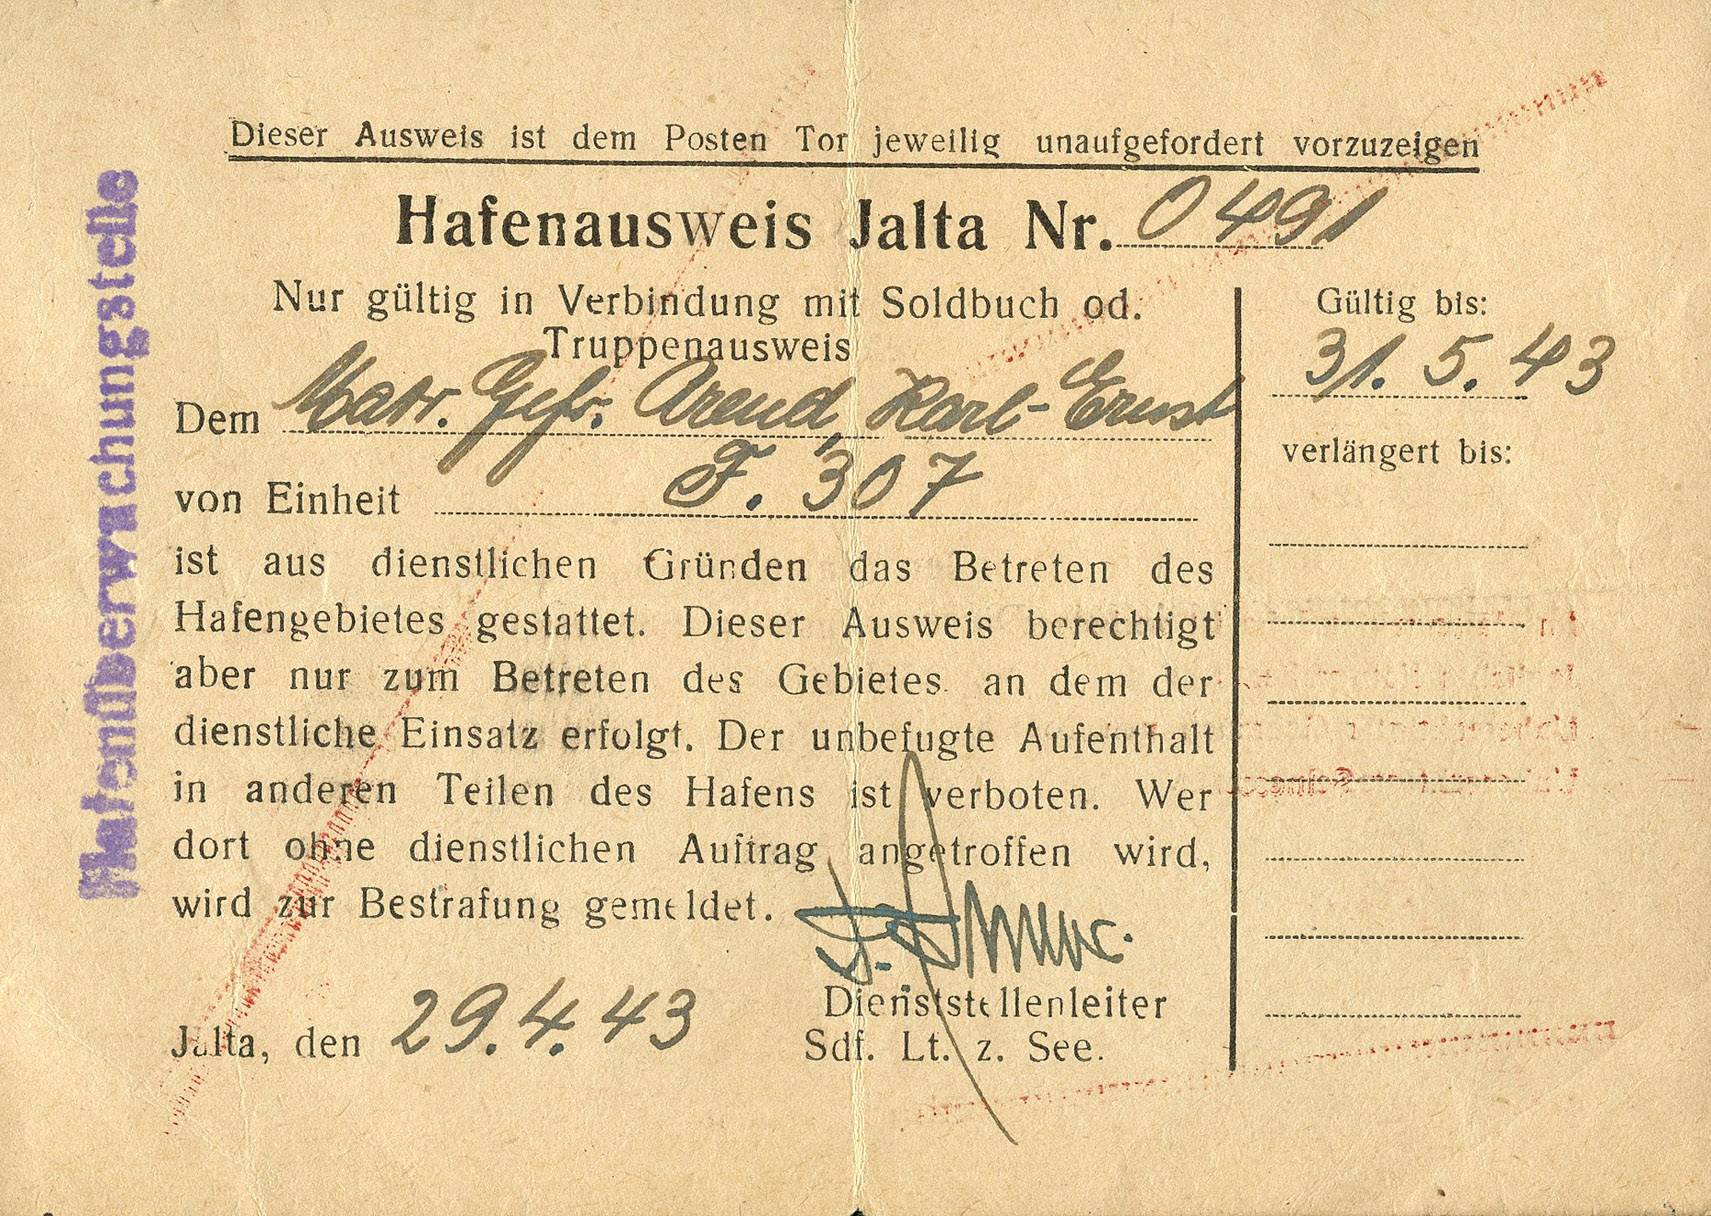 Dieser Ausweis ist dem Posten Tor jeweilig unaufgefordert vorzuzeigen
Hafenausweis Jalta Nr. 0491
Nur gültig in Verbindung mit Soldbuch od.
Truppenausweis
Dem Matr. Gefr. Arend, Karl-Ernst
von Einheit F. 307
ist aus dienstlichen Gründen das Betreten des
Hafengebietes gestattet. Dieser Ausweis berechtigt
aber nur zum Betreten des Gebietes an dem der
dienstliche Einsatz erfolgt. Der unbefugte Aufenthalt
in anderen Teilen des Hafens ist verboten. Wer
dort ohne dienstlichen Auftrag angetroffen wird,
wird zur Bestrafung gemeldet.
Jalta, den 29.4.43
Dienststellenleiter
Sdf. Lt. z. See.
Gültig bis:
31.5.43
verlängert bis:
Hafenüberwachungstelle